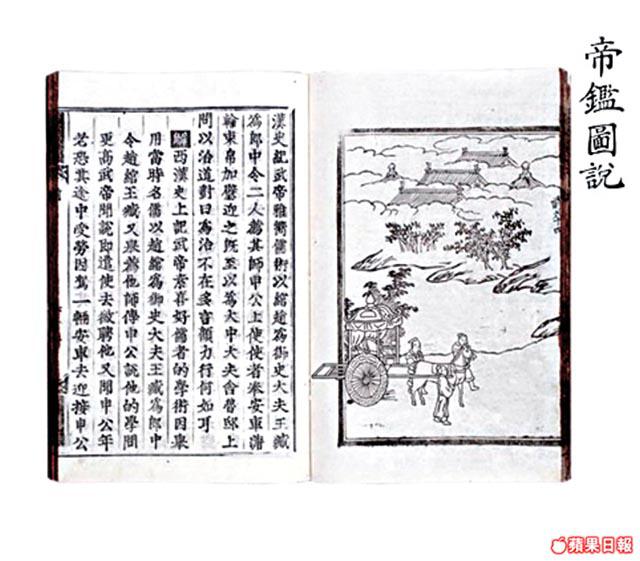 帝鑑圖說
漢史記武帝雅嚮儒術以綰趙為御史大夫王臧
為郎中令二人薦其師申公上使使者奉安車蒲
輪束帛加璧迎之既至以為大中大夫舍魯邸上
問以治道對曰為治不在多言顧力行何如耳
解西漢史上記武帝素喜好儒者的學術因舉
用當時名儒以趙綰為御史大夫王臧為郎中
令趙綰王臧又舉薦他師傅申公說他的學問
更高武帝聞說即遣使去徵聘他又聞申公年
老恐其途中受勞因駕一輛安車去迎接申公
蘋果日報